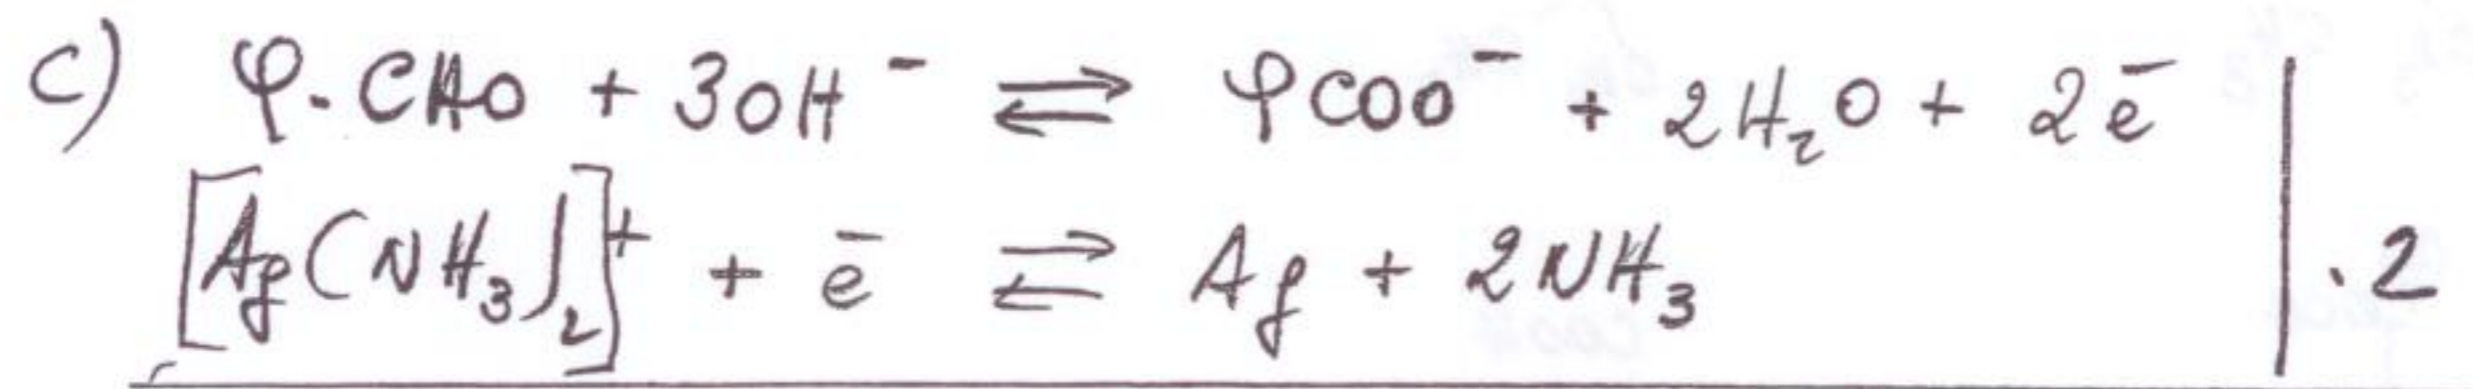 c) φ-CHO + 3OH⁻ ⇌ φCOO⁻ + 2H₂O + 2e⁻
[Ag(NH₃)₂]⁺ + e⁻ ⇌ Ag + 2NH₃ | .2